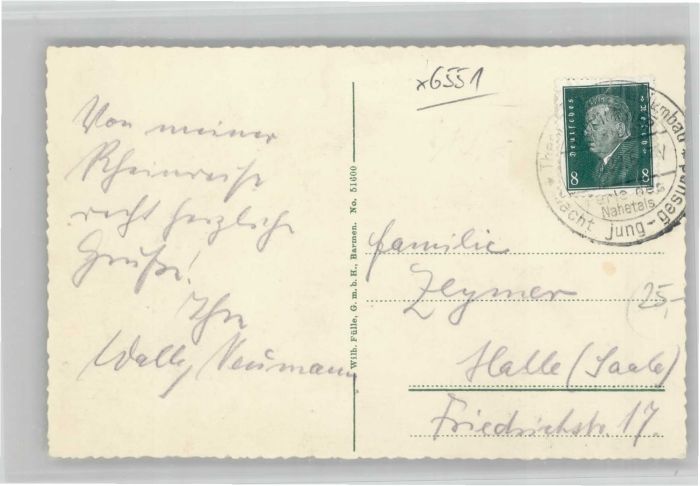 x6551
Von meiner
Rheinreise
recht herzliche
Grüße!
Ihre
Wally Neumann
Wilh. Fülle, G. m. b. H., Barmen. No. 51600
Deutsches Reich
8 8
Perle des
Nahetals
macht jung-gesund
Familie
Zeymer
25,-
Halle (Saale)
Friedrichstr. 17.